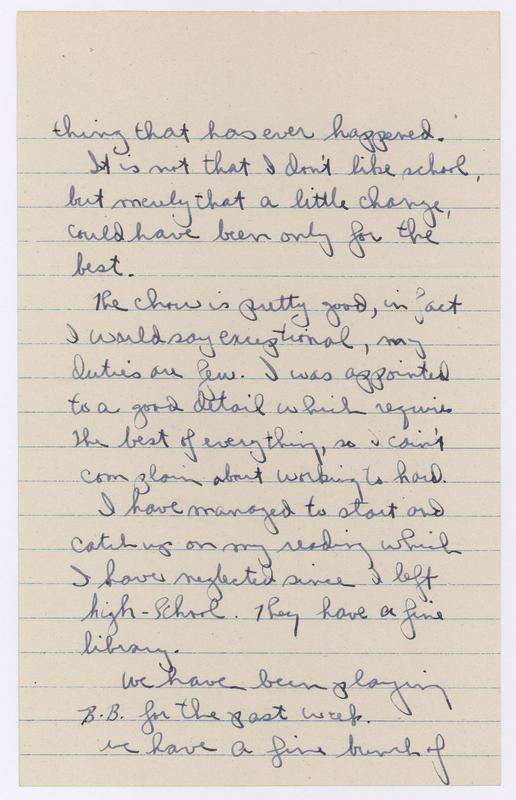 thing that has ever happened.
It is not that I don't like school,
but merely that a little change,
could have been only for the
best.
The chow is pretty good, in fact
I would say exceptional, my
duties are few. I was appointed
to a good detail which requires
the best of everything, so I can't
complain about working to hard.
I have managed to start and
catch up on my reading which
I have neglected since I left
high-school. They have a fine
library.
We have been playing
B.B. for the past week.
we have a fine bunch of